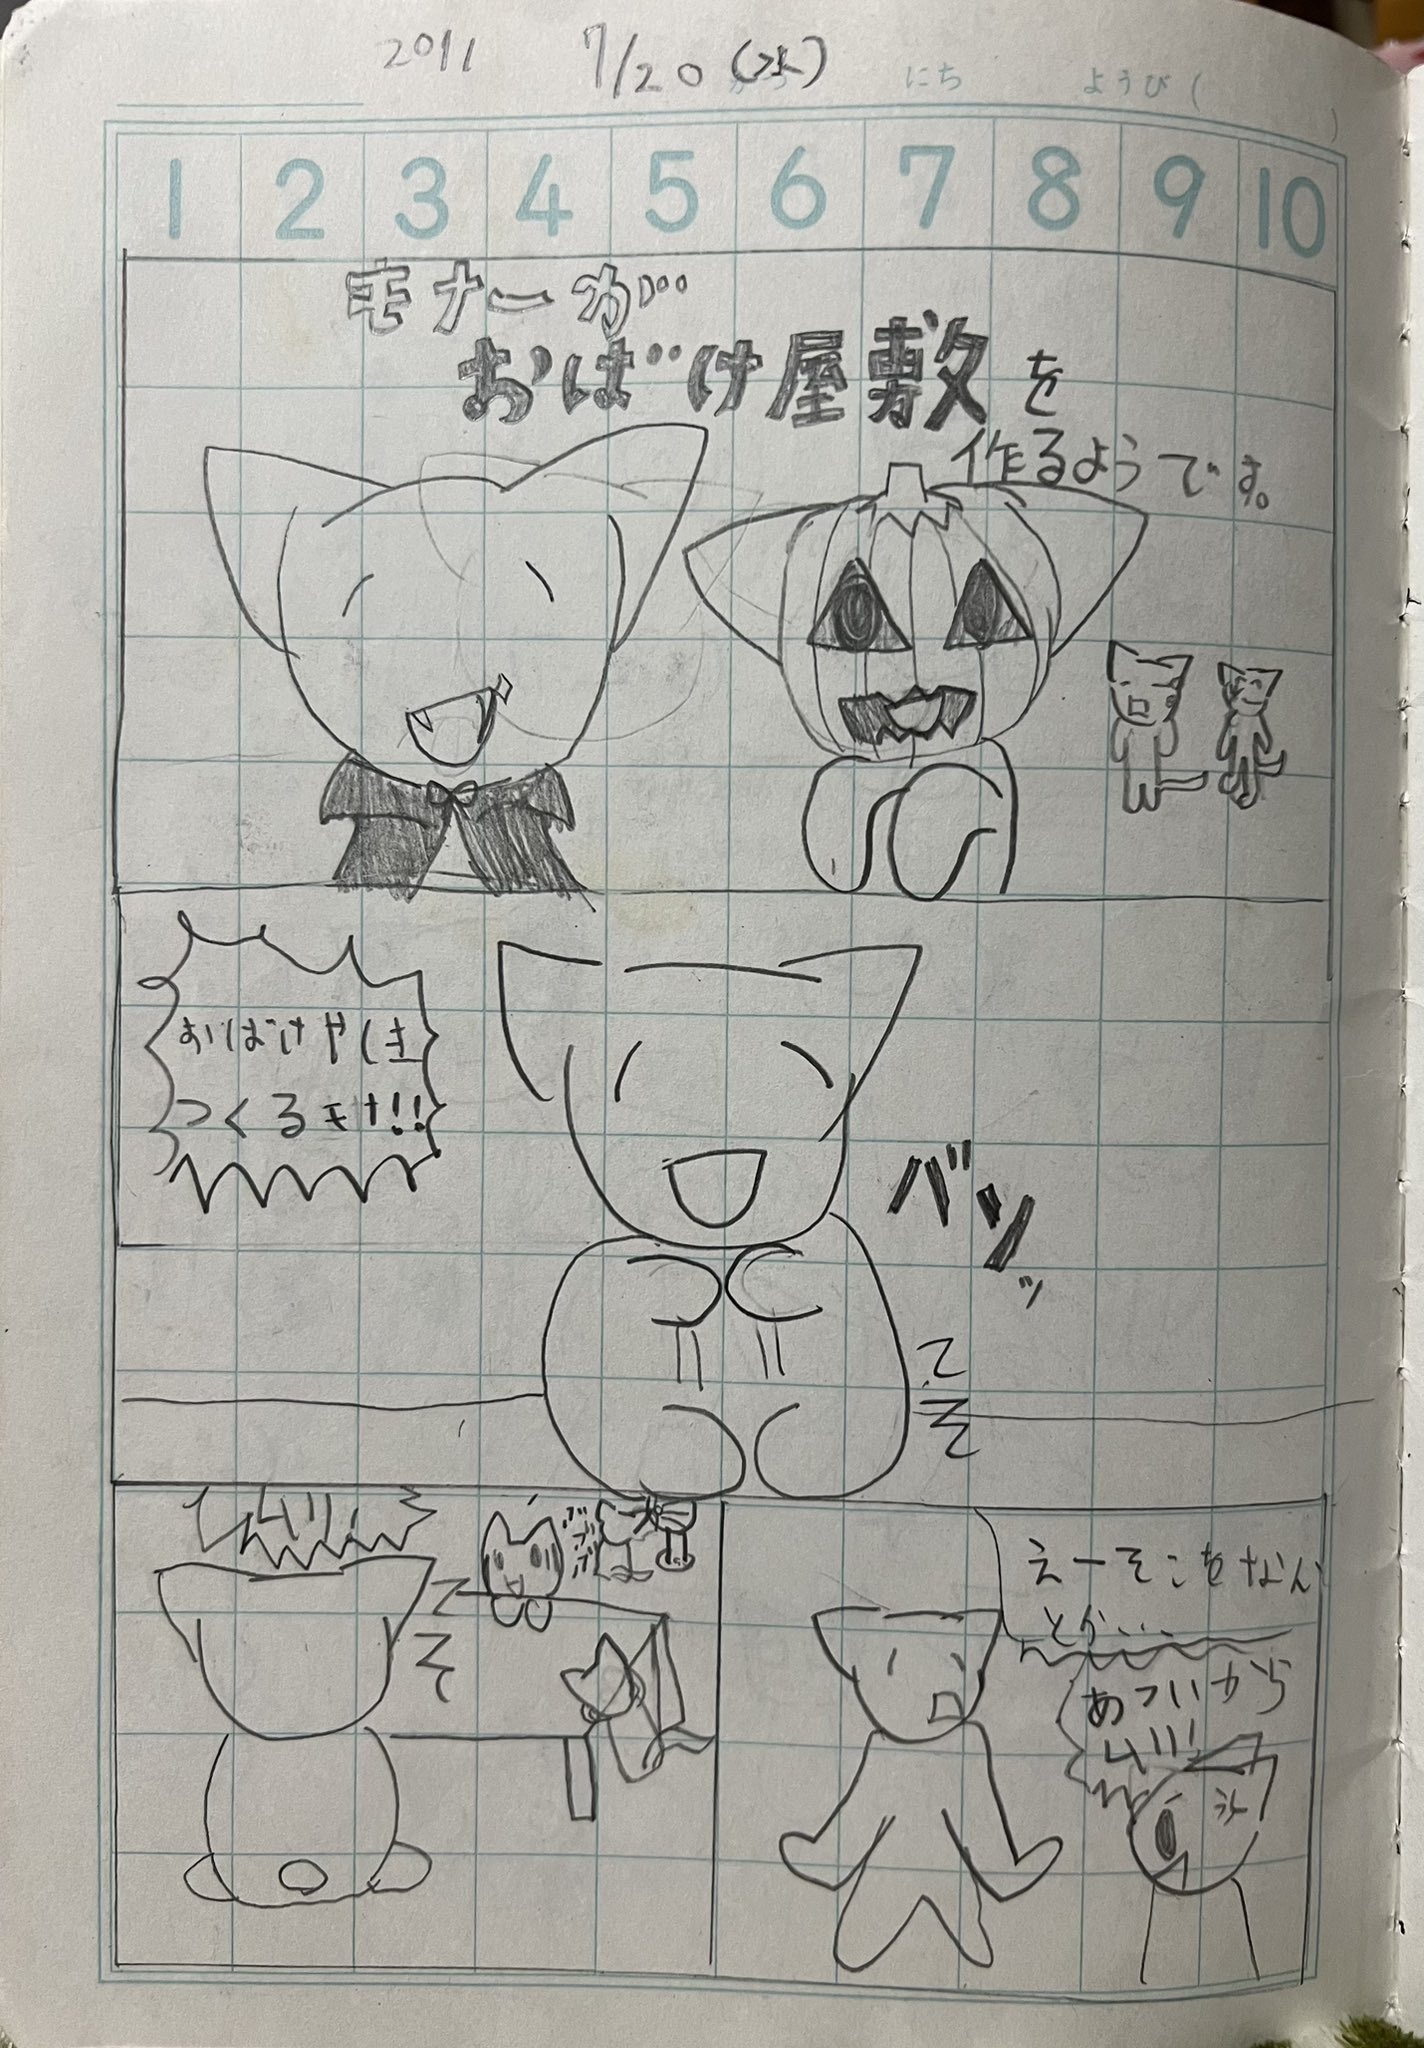 2011 7/20 (水)
にち ようび (
)
1 2 3 4 5 6 7 8 9 10
モナーが…
おばけ屋敷を
作るようです。
おばけやしき
つくるモナ!!
バンッ
てそ
ムリ!
ブブブ
てそ
えーそこをなん
とか…
あついから
ムリ!